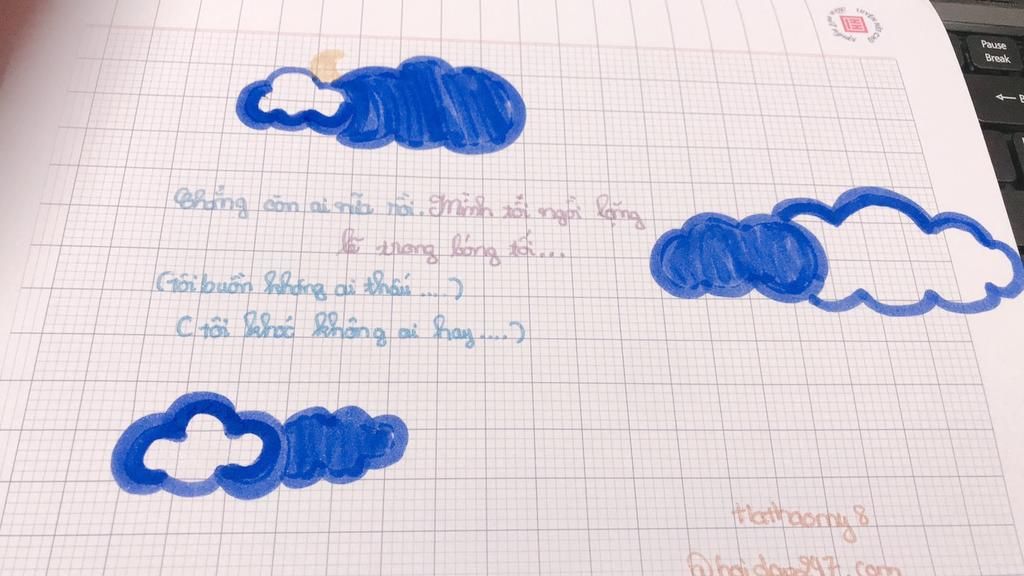 Chẳng còn ai nữa rồi. Mình tôi ngồi lặng
lẽ trong bóng tối...
(Tôi buồn không ai thấu ....)
( tôi khóc không ai hay ....)
Hathaomy8
@hoidap247.com
Pause
Break